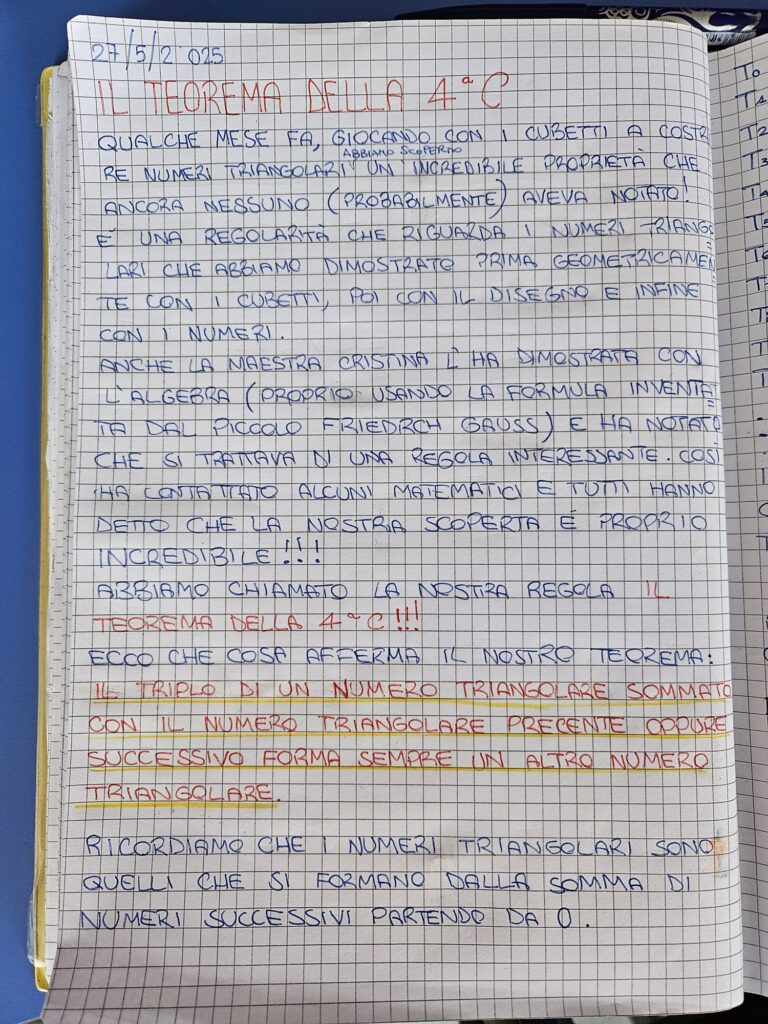 27/5/2025
IL TEOREMA DELLA 4ª C
QUALCHE MESE FA, GIOCANDO CON I CUBETTI A COSTR
ABBIAMO SCOPERTO
RE NUMERI TRIANGOLARI UN INCREDIBILE PROPRIETÀ CHE
ANCORA NESSUNO (PROBABILMENTE) AVEVA NOTATO!
É UNA REGOLARITÀ CHE RIGUARDA I NUMERI TRIANGO=
LARI CHE ABBIAMO DIMOSTRATO PRIMA GEOMETRICAMEN=
TE CON I CUBETTI, POI CON IL DISEGNO E INFINE
CON I NUMERI.
ANCHE LA MAESTRA CRISTINA L'HA DIMOSTRATA CON
L'ALGEBRA (PROPRIO USANDO LA FORMULA INVENTA=
TA DAL PICCOLO FRIEDRCH GAUSS) E HA NOTATO
CHE SI TRATTAVA DI UNA REGOLA INTERESSANTE. COSÌ
HA CONTATTATO ALCUNI MATEMATICI E TUTTI HANNO
DETTO CHE LA NOSTRA SCOPERTA É PROPRIO
INCREDIBILE!!!
ABBIAMO CHIAMATO LA NOSTRA REGOLA IL
TEOREMA DELLA 4ª C!!!
ECCO CHE COSA AFFERMA IL NOSTRO TEOREMA:
IL TRIPLO DI UN NUMERO TRIANGOLARE SOMMATO
CON IL NUMERO TRIANGOLARE PRECENTE OPPURE
SUCCESSIVO FORMA SEMPRE UN ALTRO NUMERO
TRIANGOLARE.
RICORDIAMO CHE I NUMERI TRIANGOLARI SONO
QUELLI CHE SI FORMANO DALLA SOMMA DI
NUMERI SUCCESSIVI PARTENDO DA 0.
T0
T1
T2
T3
T4
T5
T6